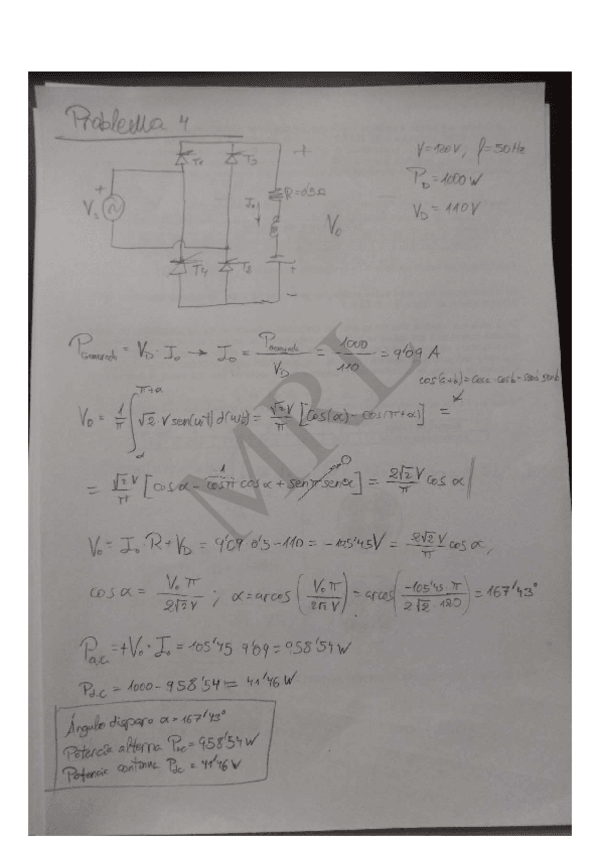 Problema 4
T1 T3
R=0'5Ω
Vs
I₀
V₀
T4 T2
V=120V, f=50Hz
P_D=1000W
V_D=110V
= V_D · I₀ → I₀ = = 1000/110 = 9'09 A
cos(a+b)=cosa·cosb-sena·senb
V₀ = 1/π ∫_α^(π+α) √2 V sen(wt) d(wt) = √2V/π [cos(α) - cos(π+α)] =
= √2V/π [cosα - cosπ cosα + senπ senα] = 2√2V/π cosα
-1
0
V₀ = I₀·R+V_D = 9'09·0'5-110 = -105'45V = 2√2V/π cosα,
cosα = V₀π/2√2V ; α=arcos(V₀π/2√2V) = arcos(-105'45·π/2√2·120) = 167'43°
P_a.c. = +V₀·I₀ = 105'45·9'09 = 958'54W
P_d.C = 1000-958'54 = 41'46W
Ángulo disparo α=167'43°
Potencia alterna P_ac = 958'54W
Potencia continua P_dc = 41'46W
MRL